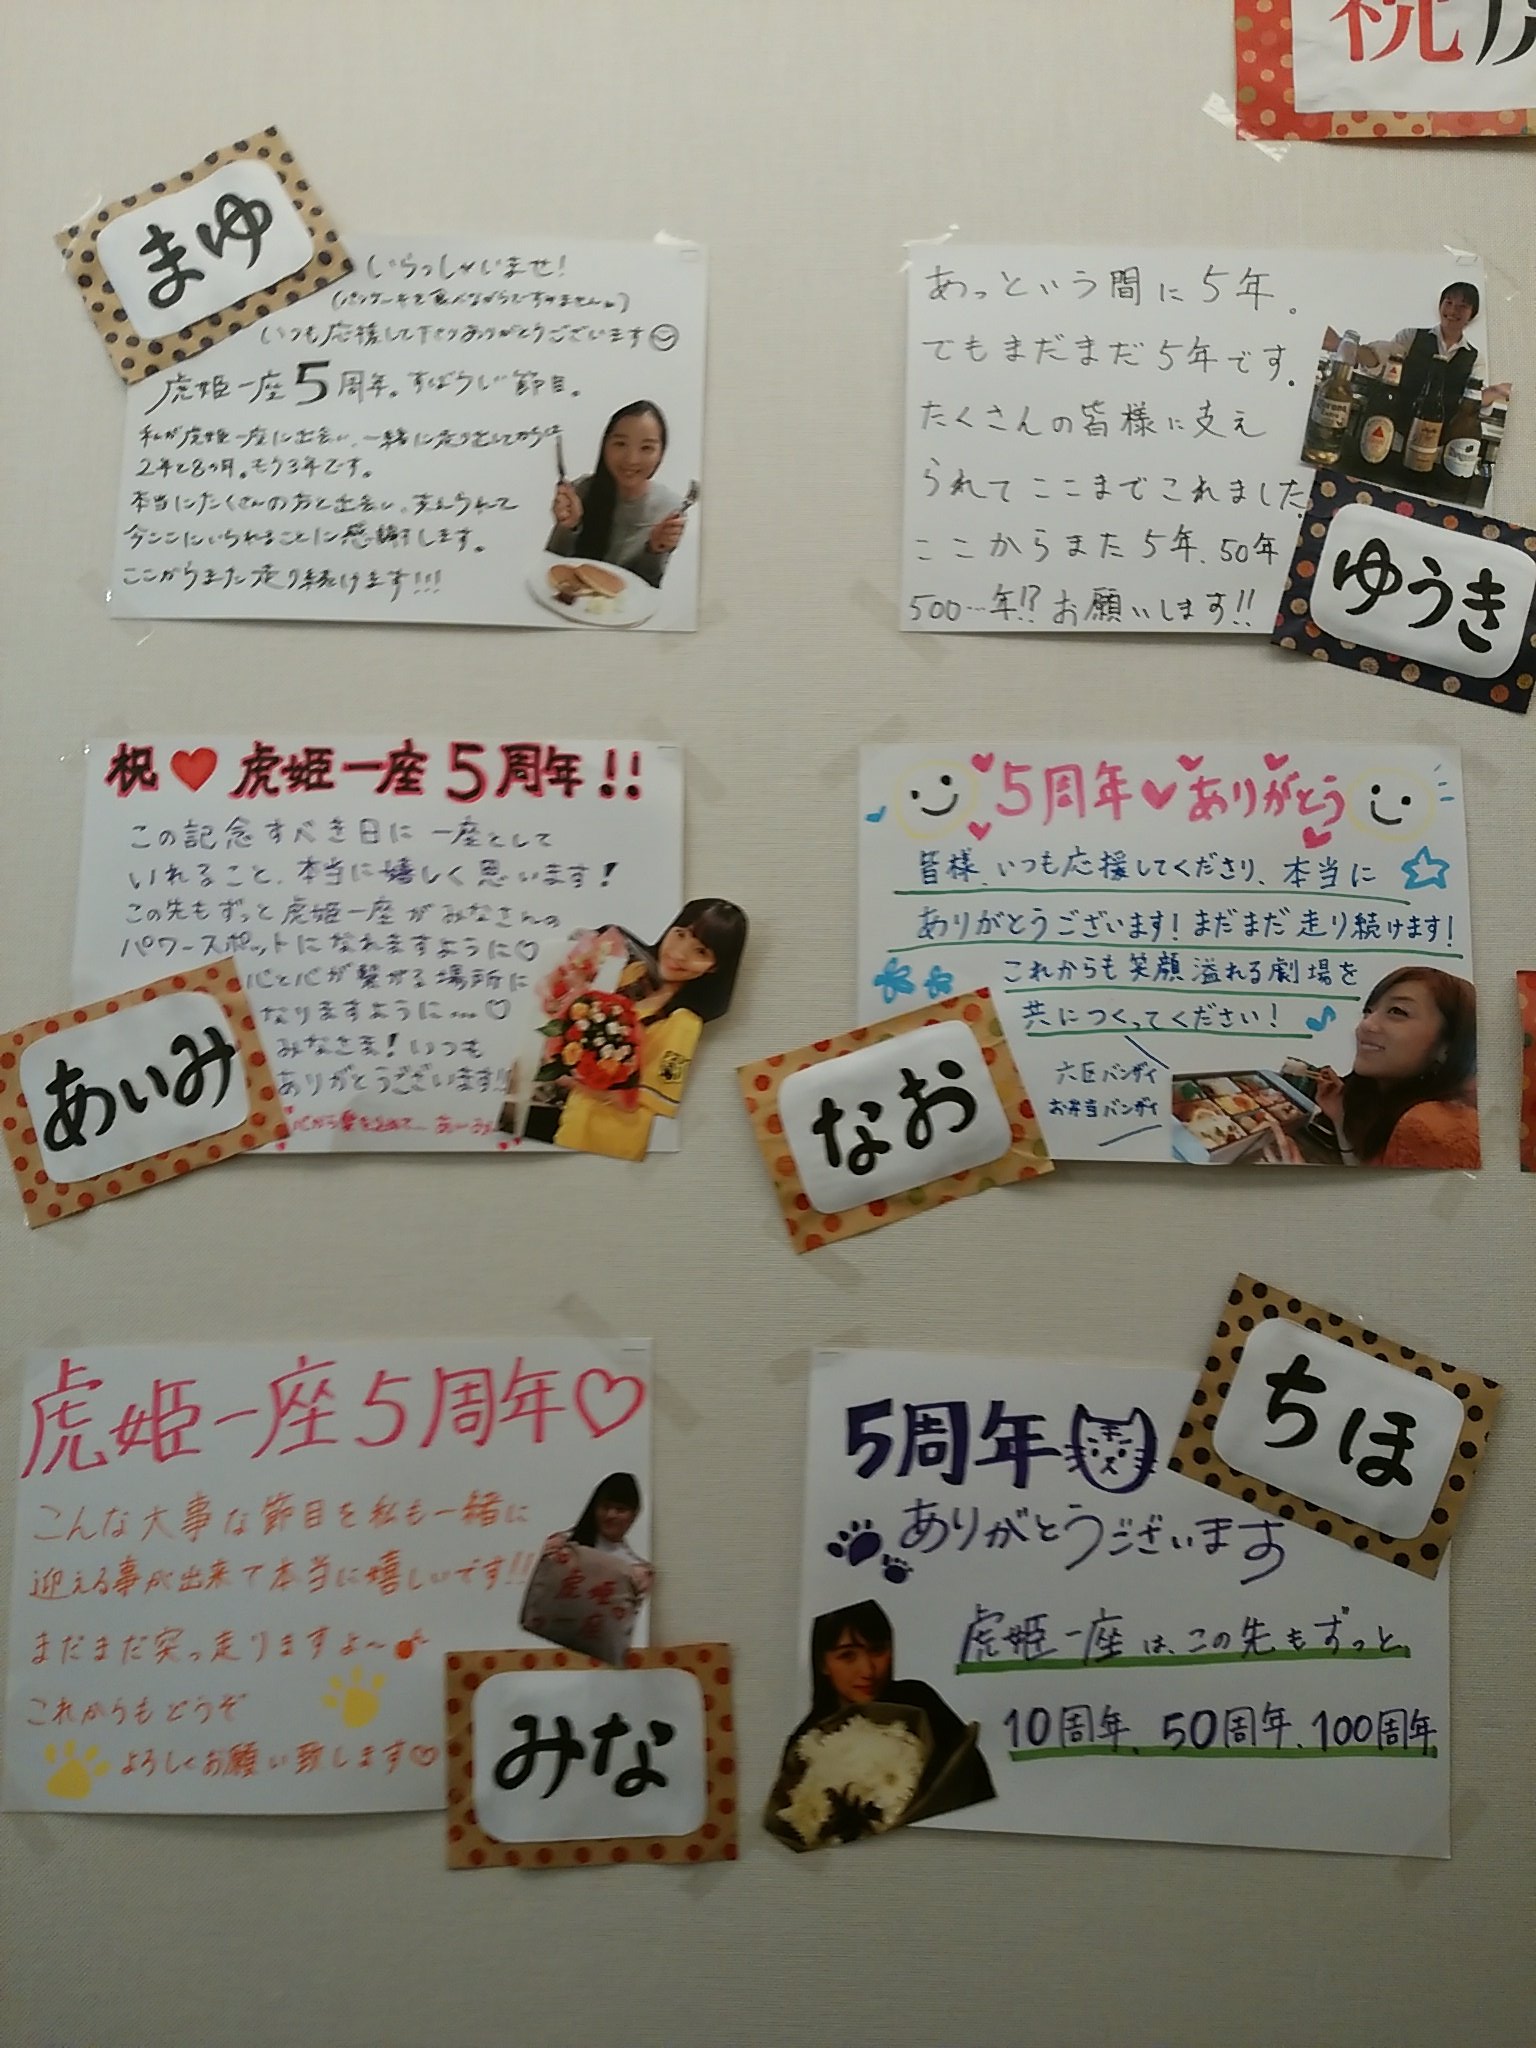 祝
まゆ
いらっしゃいませ!
(パンケーキを食べながらですみません。)
いつも応援して下さりありがとうございます
虎姫一座5周年。すばらしい節目。
私が虎姫一座に出会い、一緒に走り出してから
2年と8ヶ月。もう3年です。
本当にたくさんの方と出会い、支えられて
今ここにいられることに感謝します。
ここからまた走り続けます!!!
あっという間に5年。
でもまだまだ5年です。
たくさんの皆様に支え
られてここまでこれました。
ここからまた5年、50年
500…年!?お願いします!!
ゆうき
祝♥虎姫一座5周年!!
この記念すべき日に一座として
いれること、本当に嬉しく思います!
この先もずっと虎姫一座がみなさんの
パワースポットになれますように♡
心と心が繋がる場所に
なりますように…♡
みなさま!いつも
ありがとうございます!!
心から愛を込めて…あーみ
あいみ
5周年♥ありがとう
皆様、いつも応援してくださり、本当に
ありがとうございます!まだまだ走り続けます!
これからも笑顔溢れる劇場を
共につくってください!♪
六区バンザイ
お弁当バンザイ
なお
虎姫一座5周年♡
こんな大事な節目を私も一緒に
迎える事が出来て本当に嬉しいです!!
まだまだ突っ走りますよ〜
これからもどうぞ
よろしくお願い致します♡
虎姫
一座
みな
ちほ
5周年
ありがとうございます
虎姫一座は、この先もずっと、
10周年、50周年、100周年